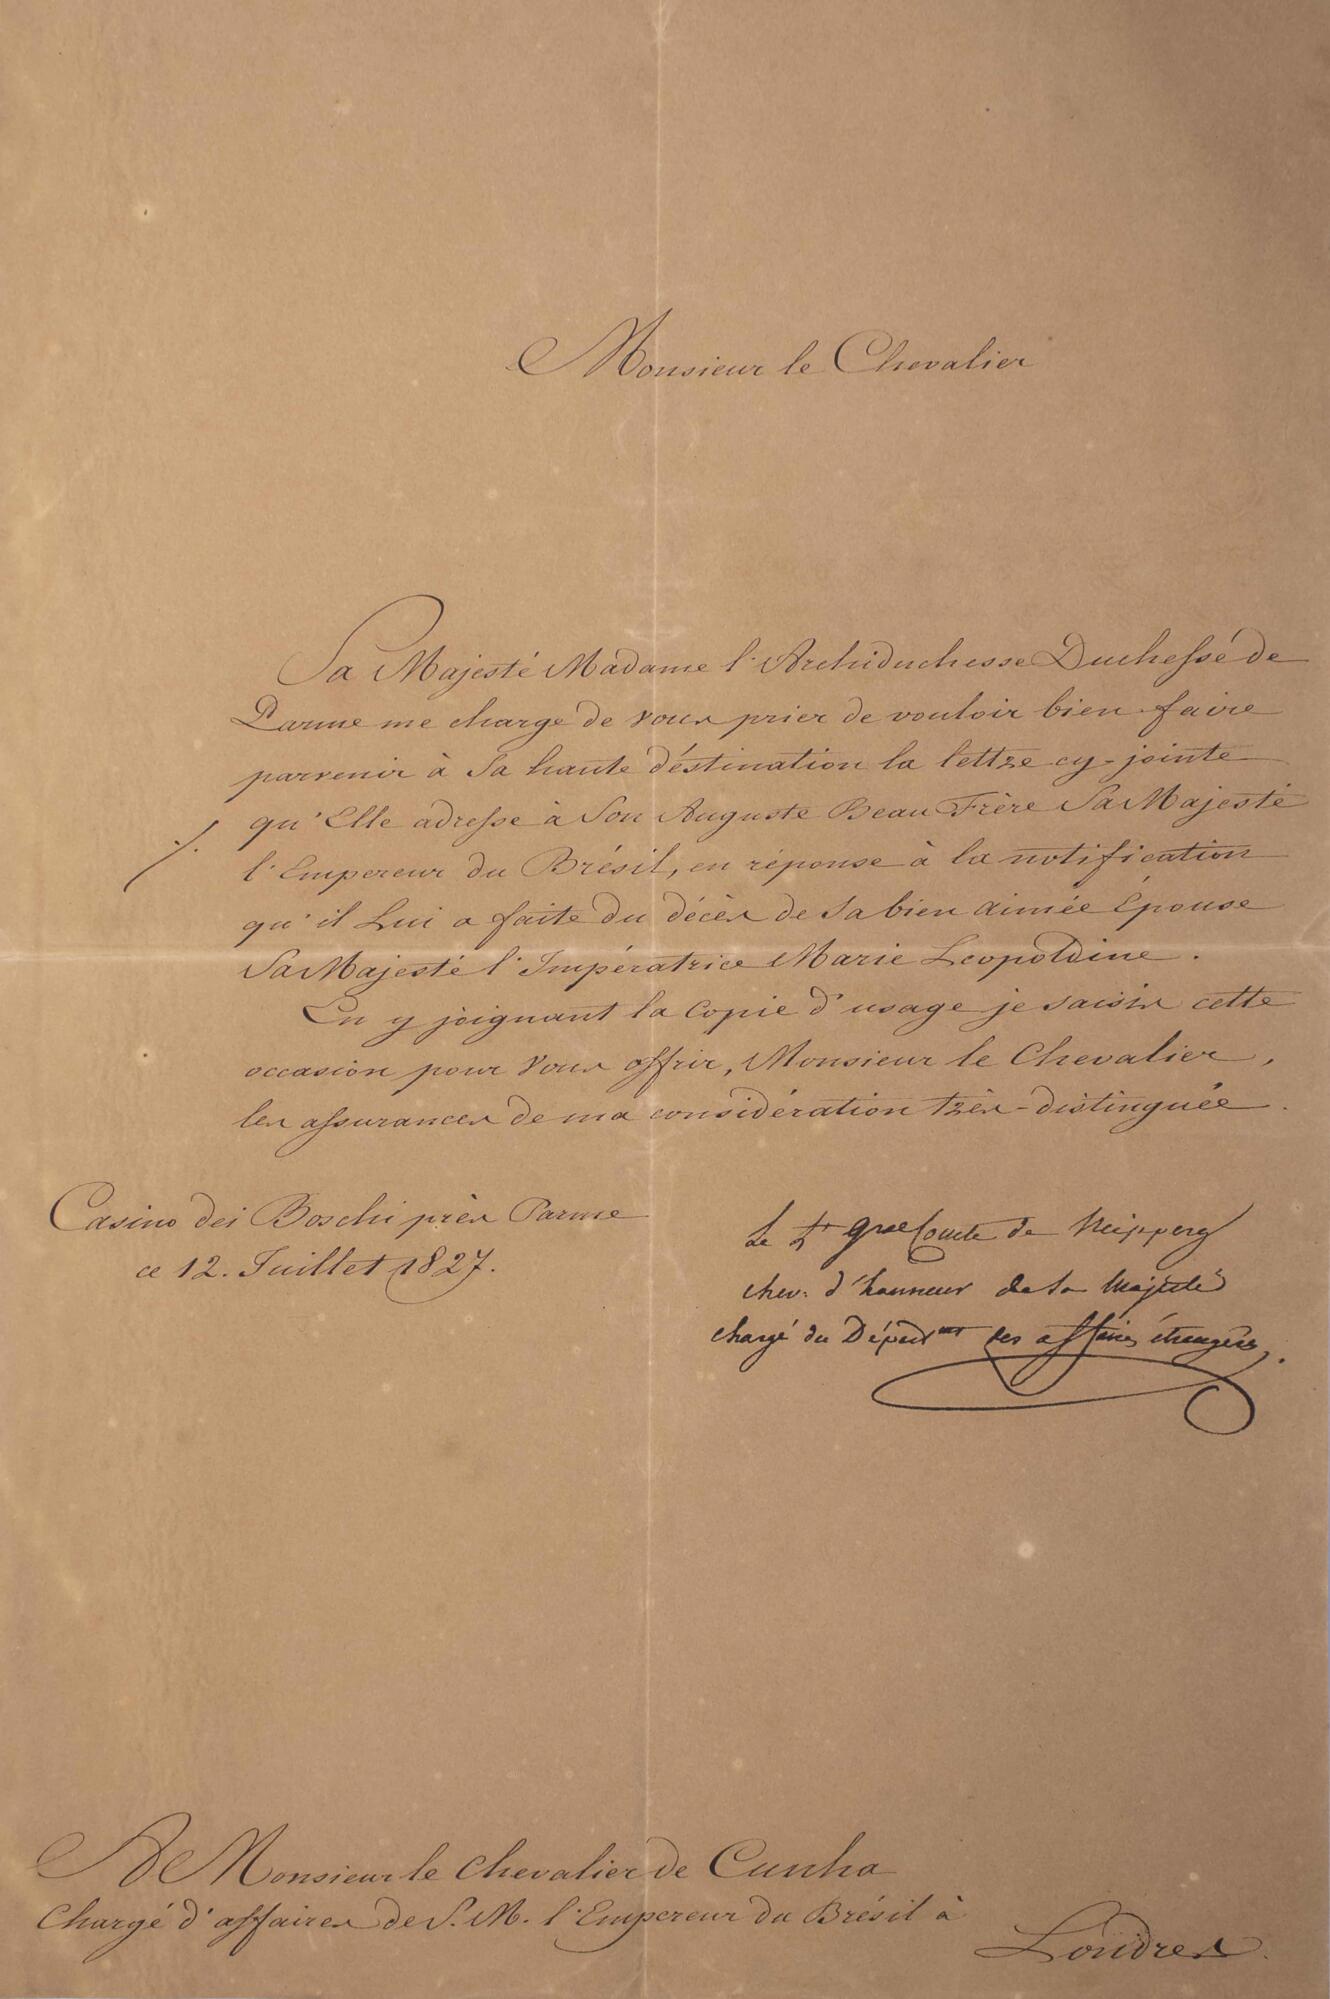 Monsieur le Chevalier
Sa Majesté Madame l'Archiduchesse Duchesse de
Parme me charge de vous prier de vouloir bien faire
parvenir à Sa haute déstination la lettre cy-jointe
qu'Elle adresse à Son Auguste Beau Frère Sa Majesté
l'Empereur du Brésil, en réponse à la notification
qu'il Lui a faite du décès de Sa bien aimée Épouse
Sa Majesté l'Impératrice Marie Leopoldine.
En y joignant la Copie d'usage je saisis cette
occasion pour Vous offrir, Monsieur le Chevalier,
les assurances de ma considération très-distinguée.
Casino dei Boschi près Parme
ce 12. Juillet 1827.
Le Lt gral Comte de Neipperg
chev. d'honneur de Sa Majesté
chargé du Départmt des affaires étrangères.
A Monsieur le Chevalier de Cunha
Chargé d'affaires de S. M. l'Empereur du Brésil à
Londres.